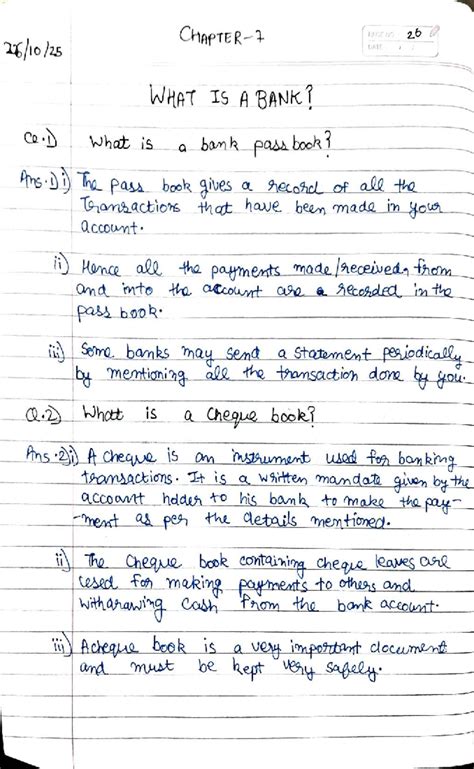 CHAPTER-7
26
DATE
26/10/25
WHAT IS A BANK?
Q.1) What is a bank pass book?
Ans.1) i) The pass book gives a record of all the
Transactions that have been made in your
account.
ii) Hence all the payments made/received from
and into the account are recorded in the
pass book.
iii) Some banks may send a statement periodically
by mentioning all the transaction done by you.
Q.2) What is a Cheque book?
Ans.2) i) A cheque is an instrument used for banking
transactions. It is a written mandate given by the
account holder to his bank to make the pay-
-ment as per the details mentioned.
ii) The Cheque book containing cheque leaves are
used for making payments to others and
withdrawing cash from the bank account.
iii) A cheque book is a very important document
and must be kept very safely.